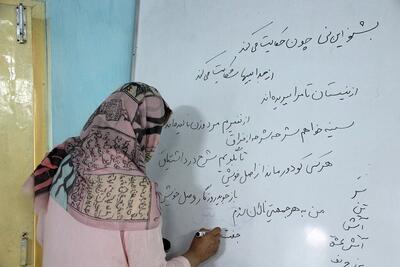 بشنو این نی چون حکایت می کند
از جداییها شکایت می کند
از نیستان تا مرا ببریده اند
از نفیرم مرد و زن نالیده اند
سینه خواهم شرحه شرحه از فراق
تا بگویم شرح درد اشتیاق
هر کسی کو دور ماند از اصل خویش
باز جوید روزگار وصل خویش
من به هر جمعیتی نالان شدم
جفت
سر
تن
آتش
آتش عشق